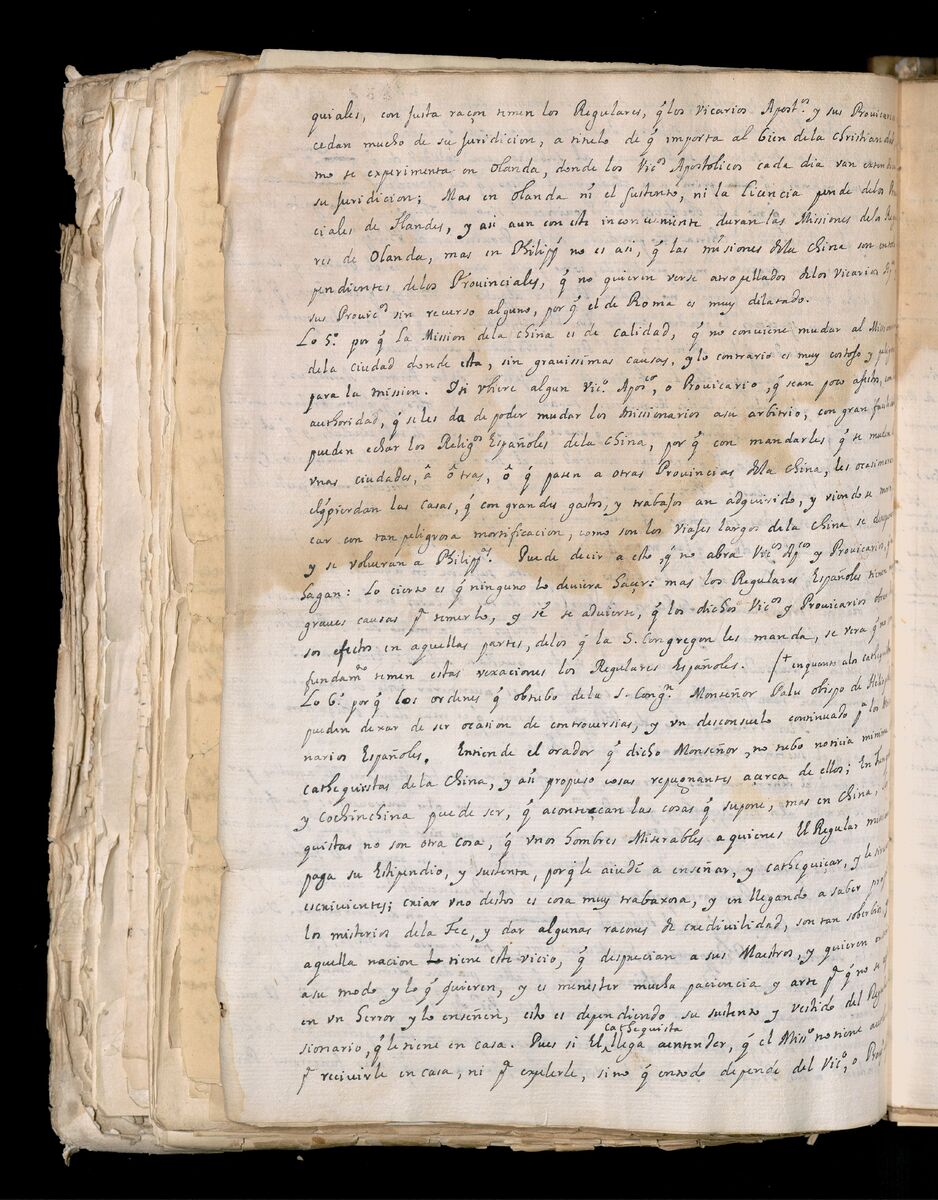 quiales, con justa raçon temen los Regulares, q̃ los Vicarios Apost.os y sus Provicarios
cedan mucho de su Juridicion, a titulo de q̃ importa al bien de la Christiandad
mo se experimenta en Olanda, donde los Vic.os Apostolicos cada dia van
su Juridicion; Mas en Olanda ni el sustento, ni la licencia pende delos
ciales de Flandes, y asi aun con este inconveniente duran las Missiones dela
res de Olanda, mas en Philipp.s no es asi, q̃ las misiones dela China son
pendientes delos Provinciales, q̃ no quieren verse atropellados delos Vicarios
sus Provic.os sin recurso alguno, por q̃ el de Roma es muy dilatado.
Lo 5.o por q̃ La Mission dela China es de calidad, q̃ no conviene mudar al
dela ciudad donde esta, sin gravissimas causas, y lo contrario es muy costoso y
para la mission. I si vbiere algun Vic.o Apos.co, o Provicario, q̃ sean poco afectos, con
authoridad, q̃ se les da de poder mudar los Missionarios asu arbitrio, con gran
pueden echar los Relig.os Españoles dela China, por q̃ con mandarles q̃ se muden
vnas ciudades, â ôtras, ô q̃ pasen a otras Provincias dela China, les
el q̃ pierdan las casas, q̃ con grandes gastos, y trabajos an adquirido, y viendose
car con tan peligrosa mortificacion, como son los viajes largos dela China se
y se volveran a Philipp.s Puede decir a esto q̃ no abra Vic.os Ap.cos y Provicarios,
hagan: Lo cierto es q̃ ninguno lo deviera haçer: mas los Regulares Españoles tienen
graves causas p.a temerlo, y si se advierte, q̃ los dichos Vic.os y Provicarios
sos efectos en aquellas partes, delos q̃ la S. Congregon les manda, se vera q̃ no
fundam.to temen estas vexaciones los Regulares Españoles. (+ enquanto alos
Lo 6.o por q̃ los ordenes q̃ obtubo de la S. Cong.n Monseñor Palu obispo de
pueden dexar de ser ocasion de controversias, y vn desconsuelo continuado p.a los
narios Españoles. Entiende el orador q̃ dicho Monseñor, no tubo noticia
cathequistas de la China, y asi propuso cosas repugnantes açerca de ellos; En
y Cochinchina puede ser, q̃ acontezcan las cosas q̃ supone, mas en China,
quistas no son otra cosa, q̃ vnos hombres Miserables a quienes El Regular
paga su Estipendio, y sustenta, porq̃ le aiudẽ a enseñar, y cathequiçar, y le
escrivientes; criar vno destos es cosa muy trabaxosa, y en llegando a saber
los misterios dela Fee, y dar algunas raçones de credivilidad, son tan
aquella nacion tiene este vicio, q̃ desprecian a sus Maestros, y quieren
asu modo y lo q̃ quieren, y es menester mucha paciencia y arte p.a q̃ no se
en vn herror y lo enseñen, esto es dependiendo su sustento y vestido del
sionario, q̃ le tiene en casa. Pues si El cathequista llega aentender, q̃ el Miss.o no tiene
p.a recivirle en casa, ni p.a expelerle, sino q̃ entodo depende del Vic.o, o